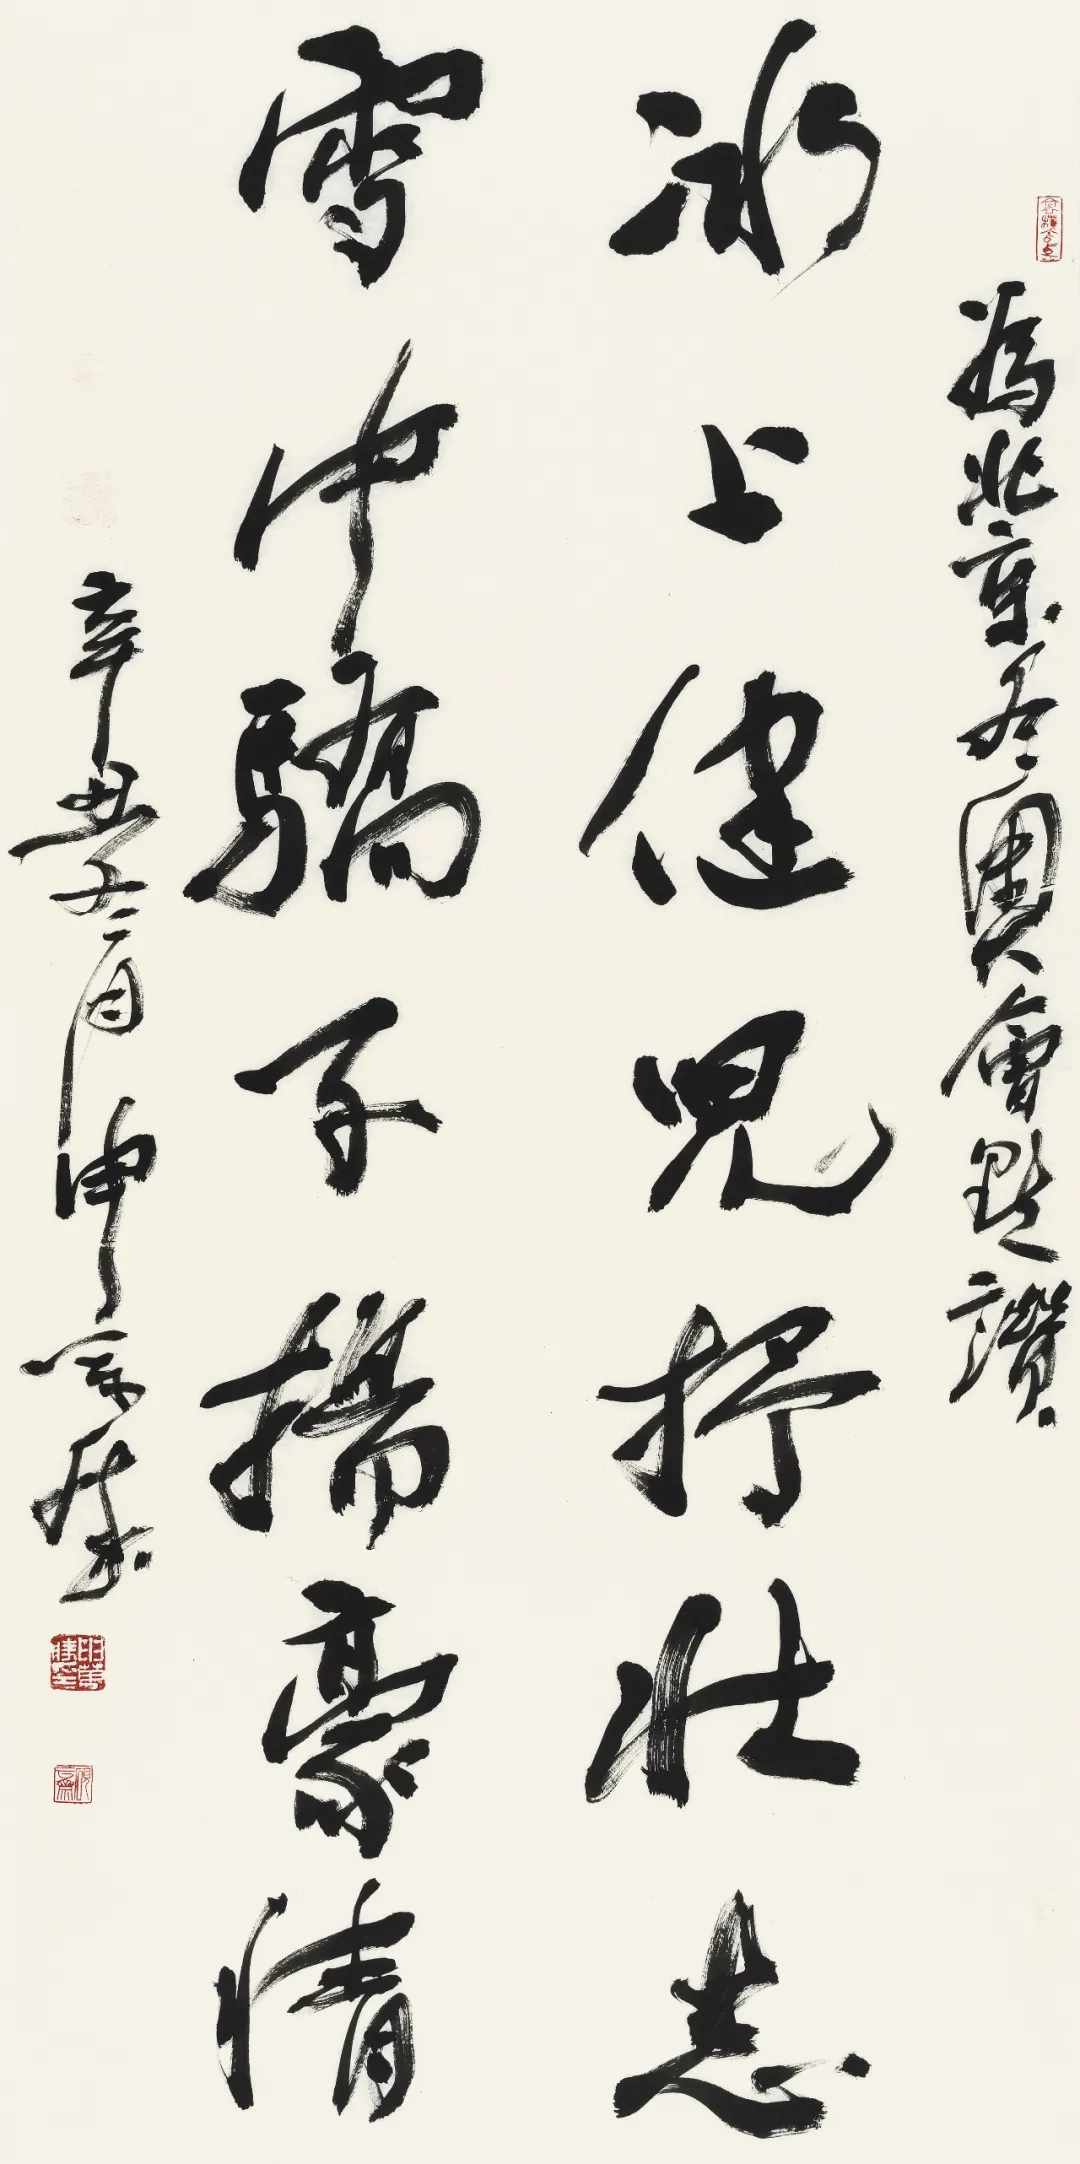 為北京冬奧會點讚
冰上健兒抒壯志
雪中驕子揚豪情
辛丑十二月申萬勝